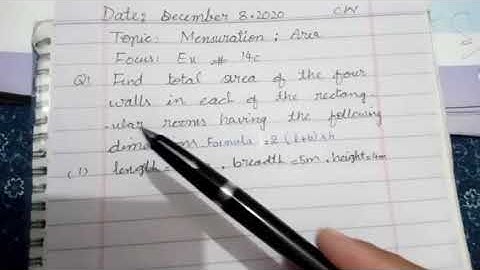 Date; December 8.2020 CW
Topic: Mensuration ; Area
Focus: Ex # 14c
Q1 Find total area of the four
walls in each of the rectang
-ular rooms having the following
dim ns Formula = 2 (l+b)xh
(1) length = . breadth = 5m . height = 4m